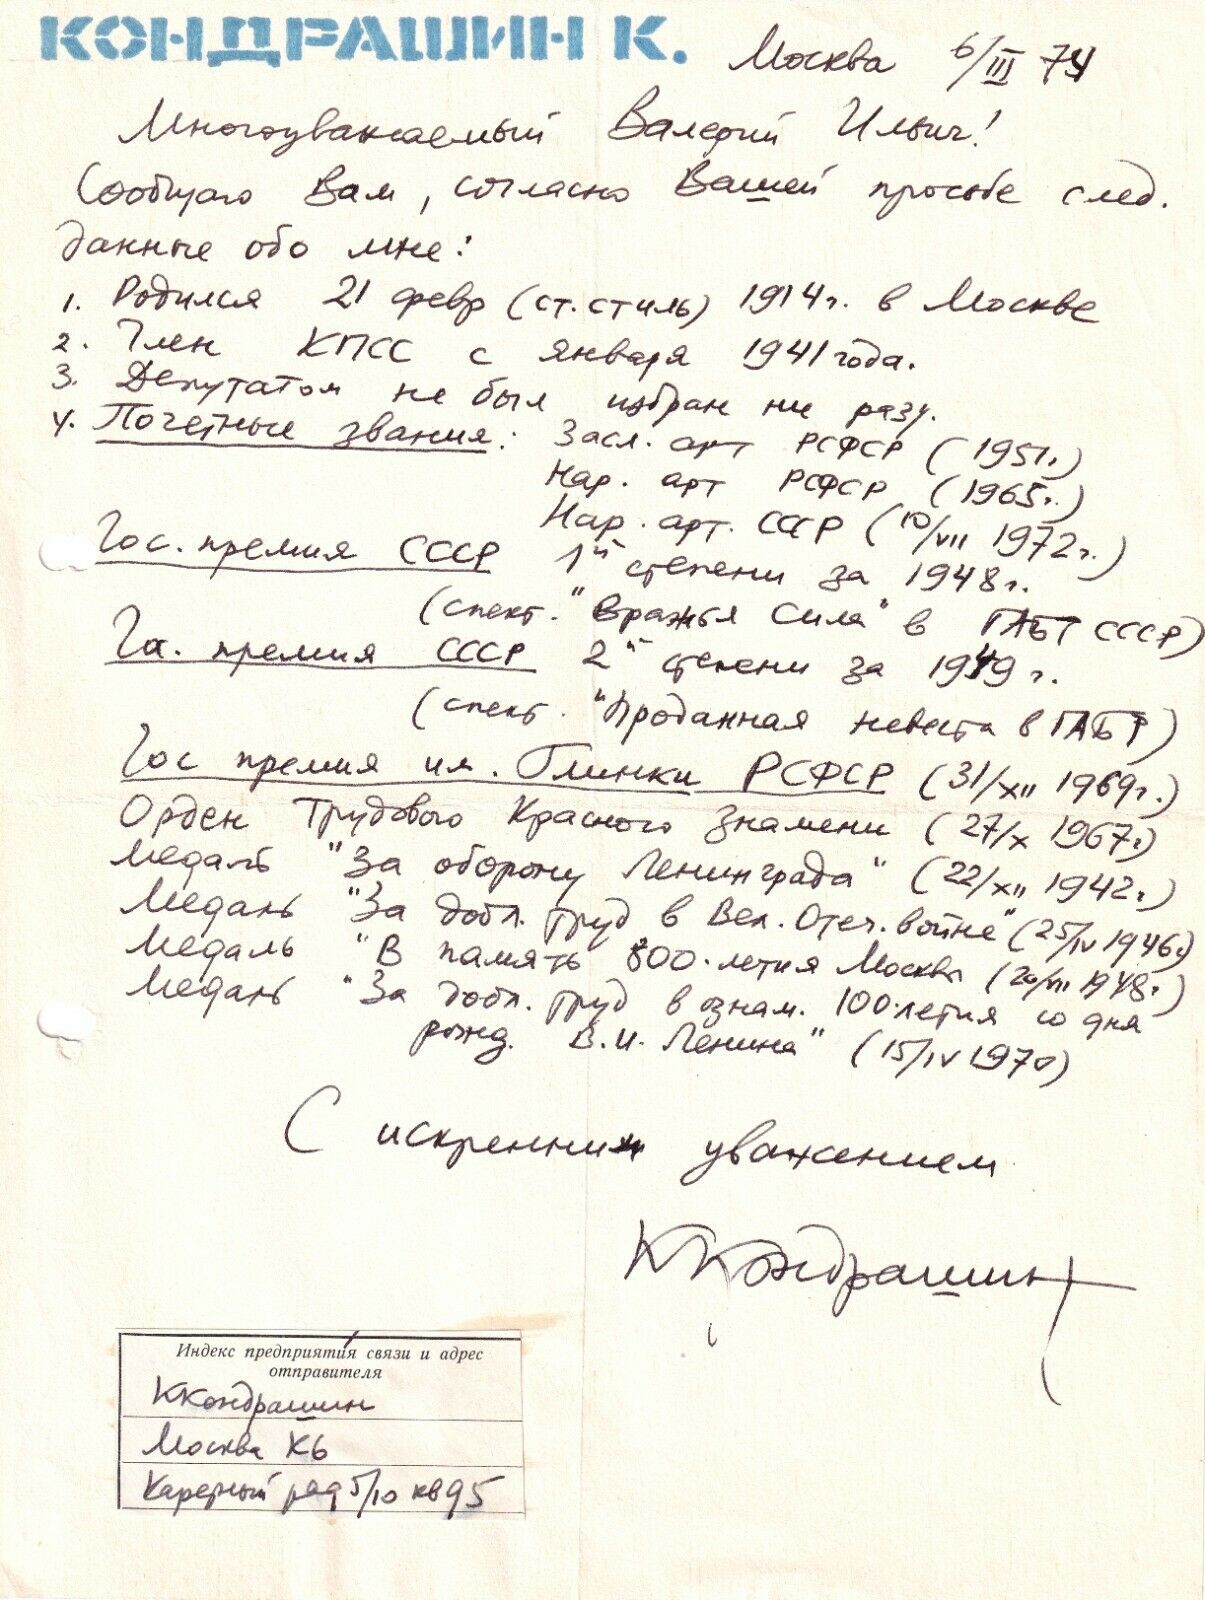 КОНДРАШИН К.
Москва 6/III 74
Многоуважаемый Валерий Ильич!
Сообщаю Вам, согласно Вашей просьбе след.
данные обо мне:
1. Родился 21 февр (ст. стиль) 1914г. в Москве
2. Член КПСС с января 1941 года.
3. Депутатом не был избран ни разу.
4. Почетные звания: Засл. арт РСФСР (1951г.)
Нар. арт РСФСР (1965г.)
Нар. арт. СССР (10/VII 1972г.)
Гос. премия СССР 1й степени за 1948г.
(спект. "Вражья Сила" в ГАБТ СССР)
Гос. премия СССР 2й степени за 1949г.
(спект. "Проданная невеста в ГАБТ)
Гос премия им. Глинки РСФСР (31/XII 1969г.)
Орден Трудового Красного Знамени (27/X 1967г.)
Медаль "За оборону Ленинграда" (22/XII 1942г.)
Медаль "За добл. труд в Вел. Отеч. войне" (25/IV 1946г.)
Медаль "В память 800-летия Москвы (20/VII 1948г.)
Медаль "За добл. труд в ознам. 100-летия со дня
рожд. В.И. Ленина" (15/IV 1970)
С искренним уважением
ККондрашин
Индекс предприятия связи и адрес
отправителя
ККондрашин
Москва К6
Каретный ряд 5/10 кв 95